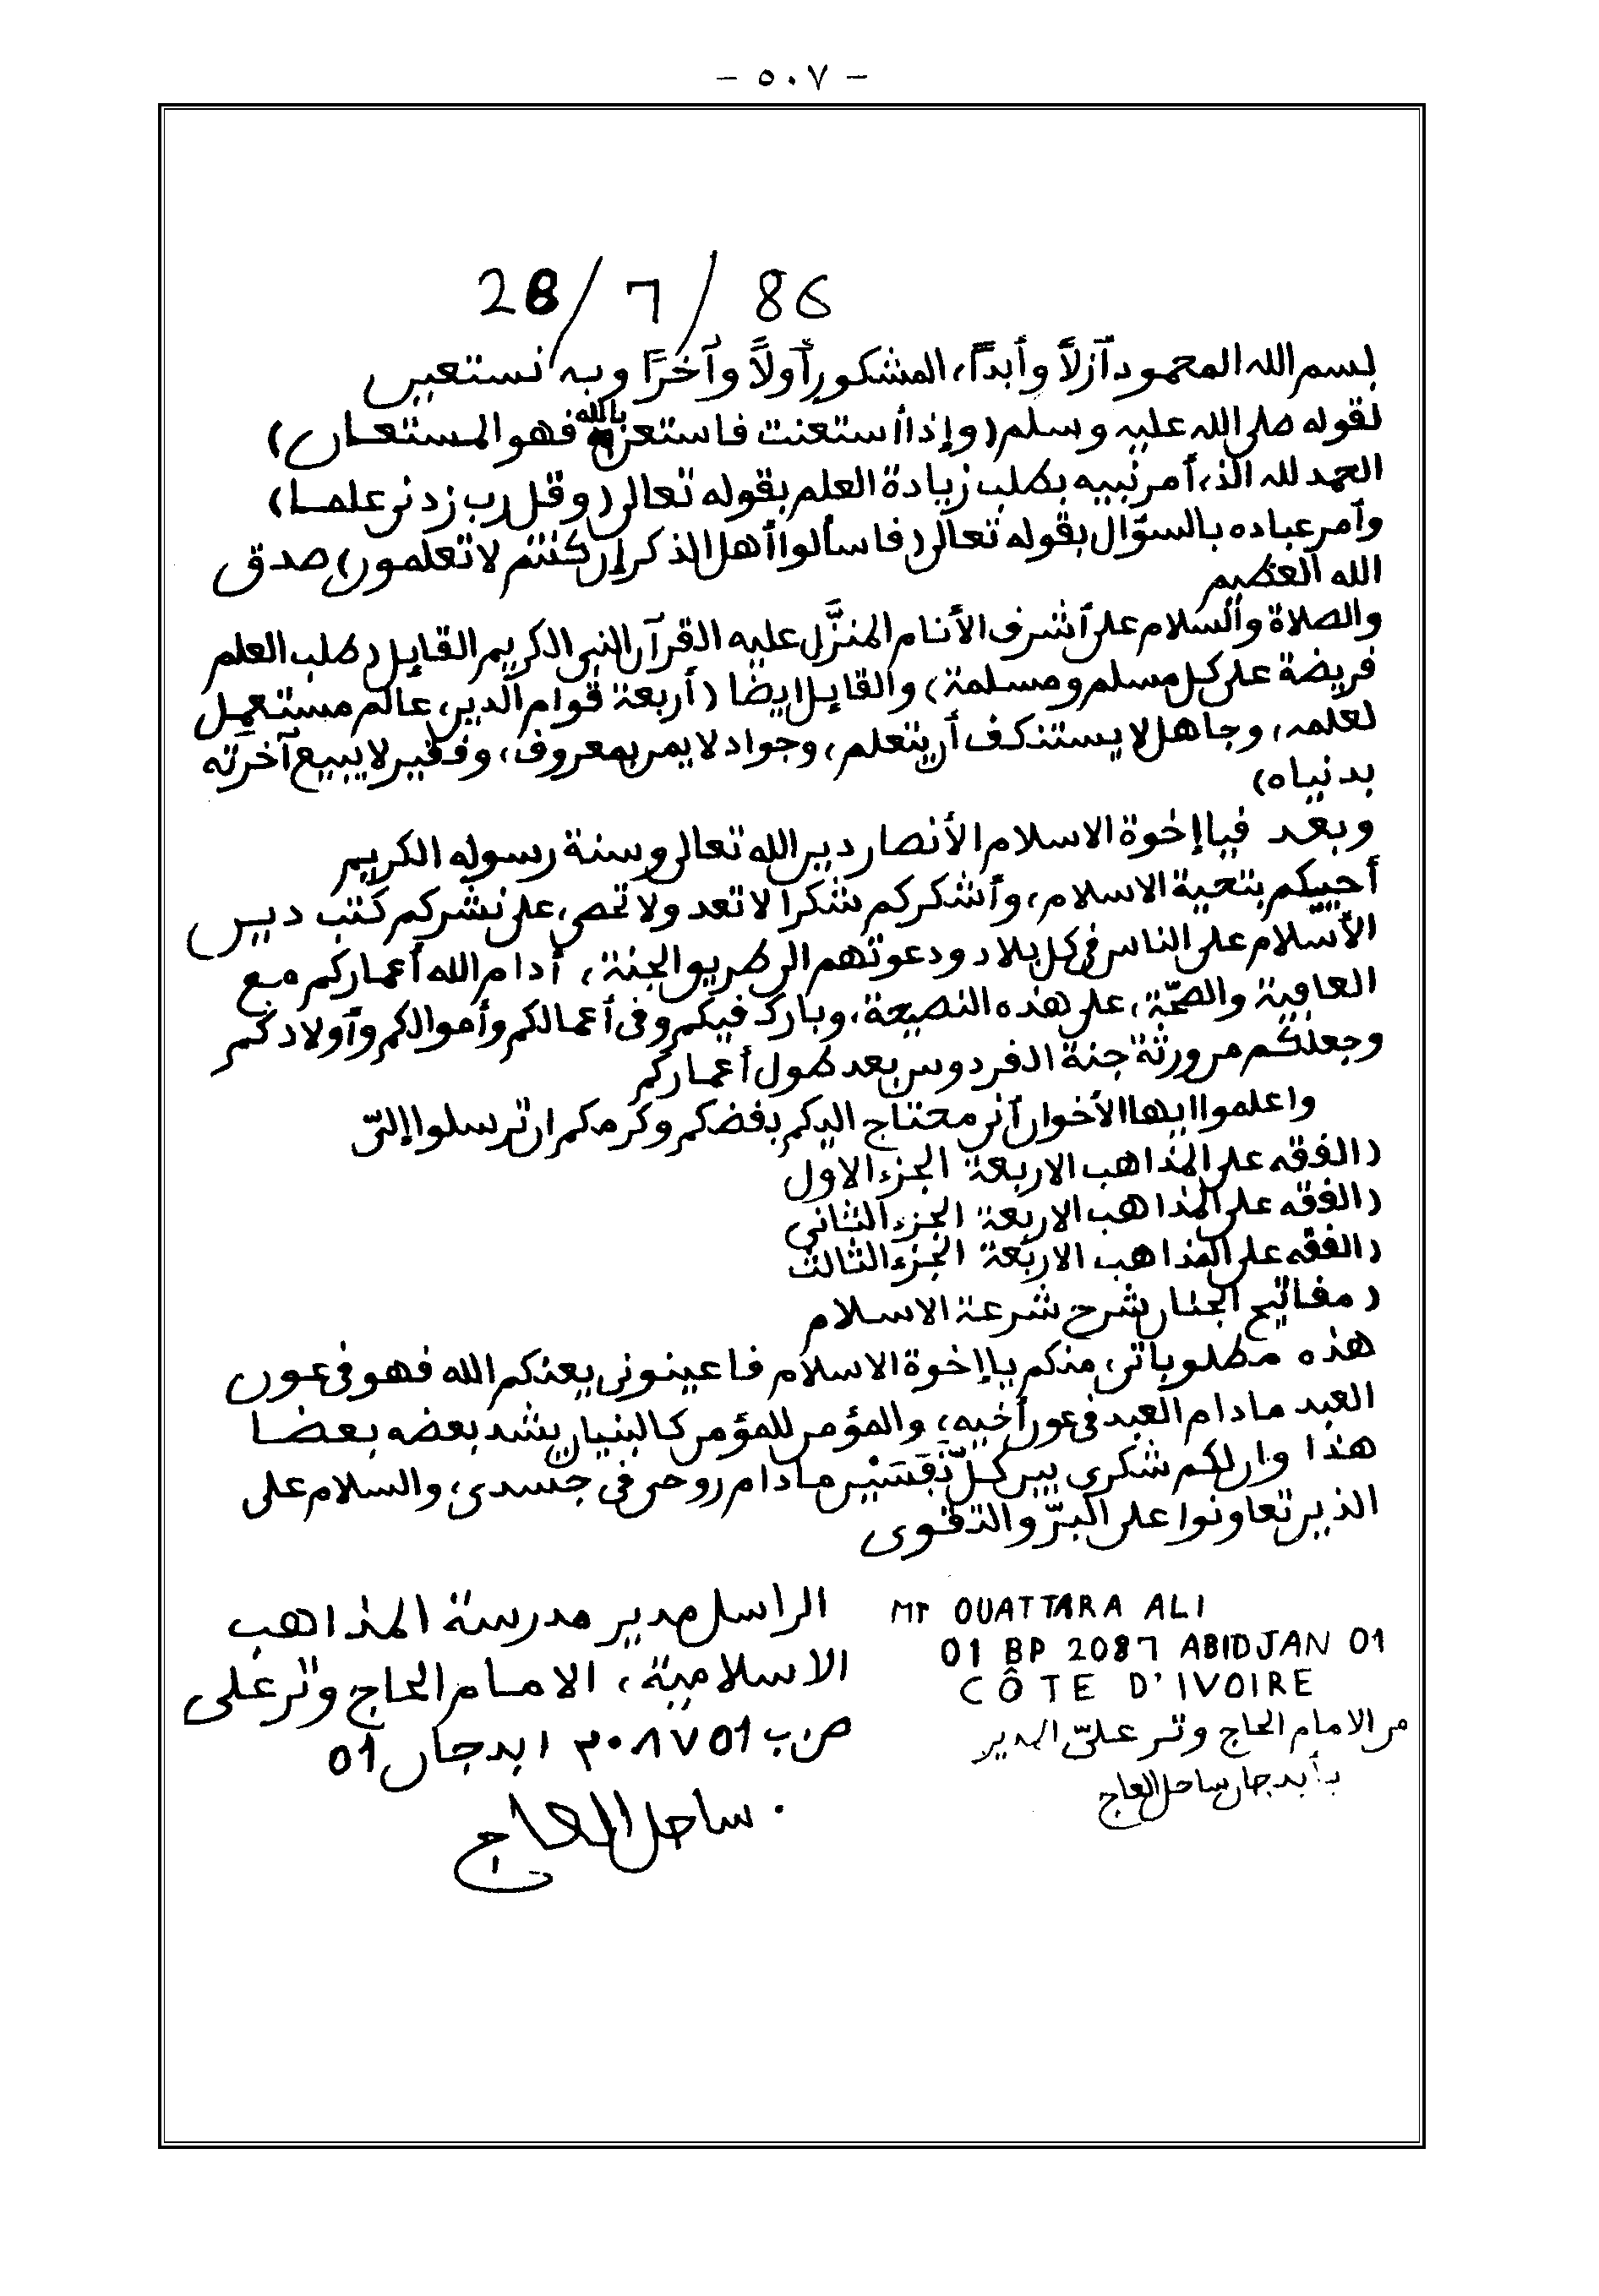 - ٥٠٧ -
28/7/86
بسم الله المحمود آزلاً وأبداً، المشكور أولاً وآخرًا وبه نستعين
لقوله صلى الله عليه وسلم (وإذا استعنت فاستعن بالله فهو المستعان)
الحمد لله الذى أمر نبيه بطلب زيادة العلم بقوله تعالى (وقل رب زدنى علما)
وآمر عباده بالسؤال بقوله تعالى (فاسألوا أهل الذكر إن كنتم لا تعلمون) صدق
الله العظيم
والصلاة والسلام على أشرف الأنام المنزَّل عليه القرآن النبى الكريم القايل (طلب العلم
فريضة على كل مسلم ومسلمة) والقايل ايضا (أربعة قوام الدين، عالم مستعمل
لعلمه، وجاهل لا يستنكف أن يتعلم، وجواد لا يمن بمعروف، وفقير لا يبيع آخرته
بدنياه)
وبعد فيا إخوة الاسلام الأنصار دين الله تعالى وسنة رسوله الكريم
أحييكم بتحية الاسلام، وأشكركم شكرا لا تعد ولا تحصى على نشركم كتب دين
الأسلام على الناس فى كل بلاد ودعوتهم الى طريق الجنة، أدام الله أعماركم مع
العافية والصحّة، على هذه النصيحة، وبارك فيكم وفى أعمالكم وأموالكم وأولادكم
وجعلكم من ورثة جنة الفردوس بعد طول أعماركم
واعلموا ايها الأخوان أنى محتاج اليكم بفضكم وكرمكم ان ترسلوا إلىّ
(الفقه على المذاهب الاربعة الجزء الاول
(الفقه على المذاهب الاربعة الجزء الثانى
(الفقه على المذاهب الاربعة الجزء الثالث
(مفاتيح الجنان شرح شرعة الاسلام
هذه مطلوباتى منكم يا إخوة الاسلام فاعينونى يعنكم الله فهو فى عون
العبد مادام العبد فى عون أخيه، والمؤمن للمؤمن كالبنيان يشد بعضه بعضا
هذا وان لكم شكرى بين كلّ نَفَسَيْن مادام روحى فى جسدى، والسلام على
الذين تعاونوا على البرّ والتقوى
Mr OUATTARA ALI
01 BP 2087 ABIDJAN 01
CÔTE D'IVOIRE
من الامام الحاج وتر علىّ المدير
بأبدجان ساحل العاج
الراسل مدير مدرسة المذاهب
الاسلامية، الامام الحاج وتر على
ص ب 01 ٢٠٨٧ ابدجان 01
ساحل العاج